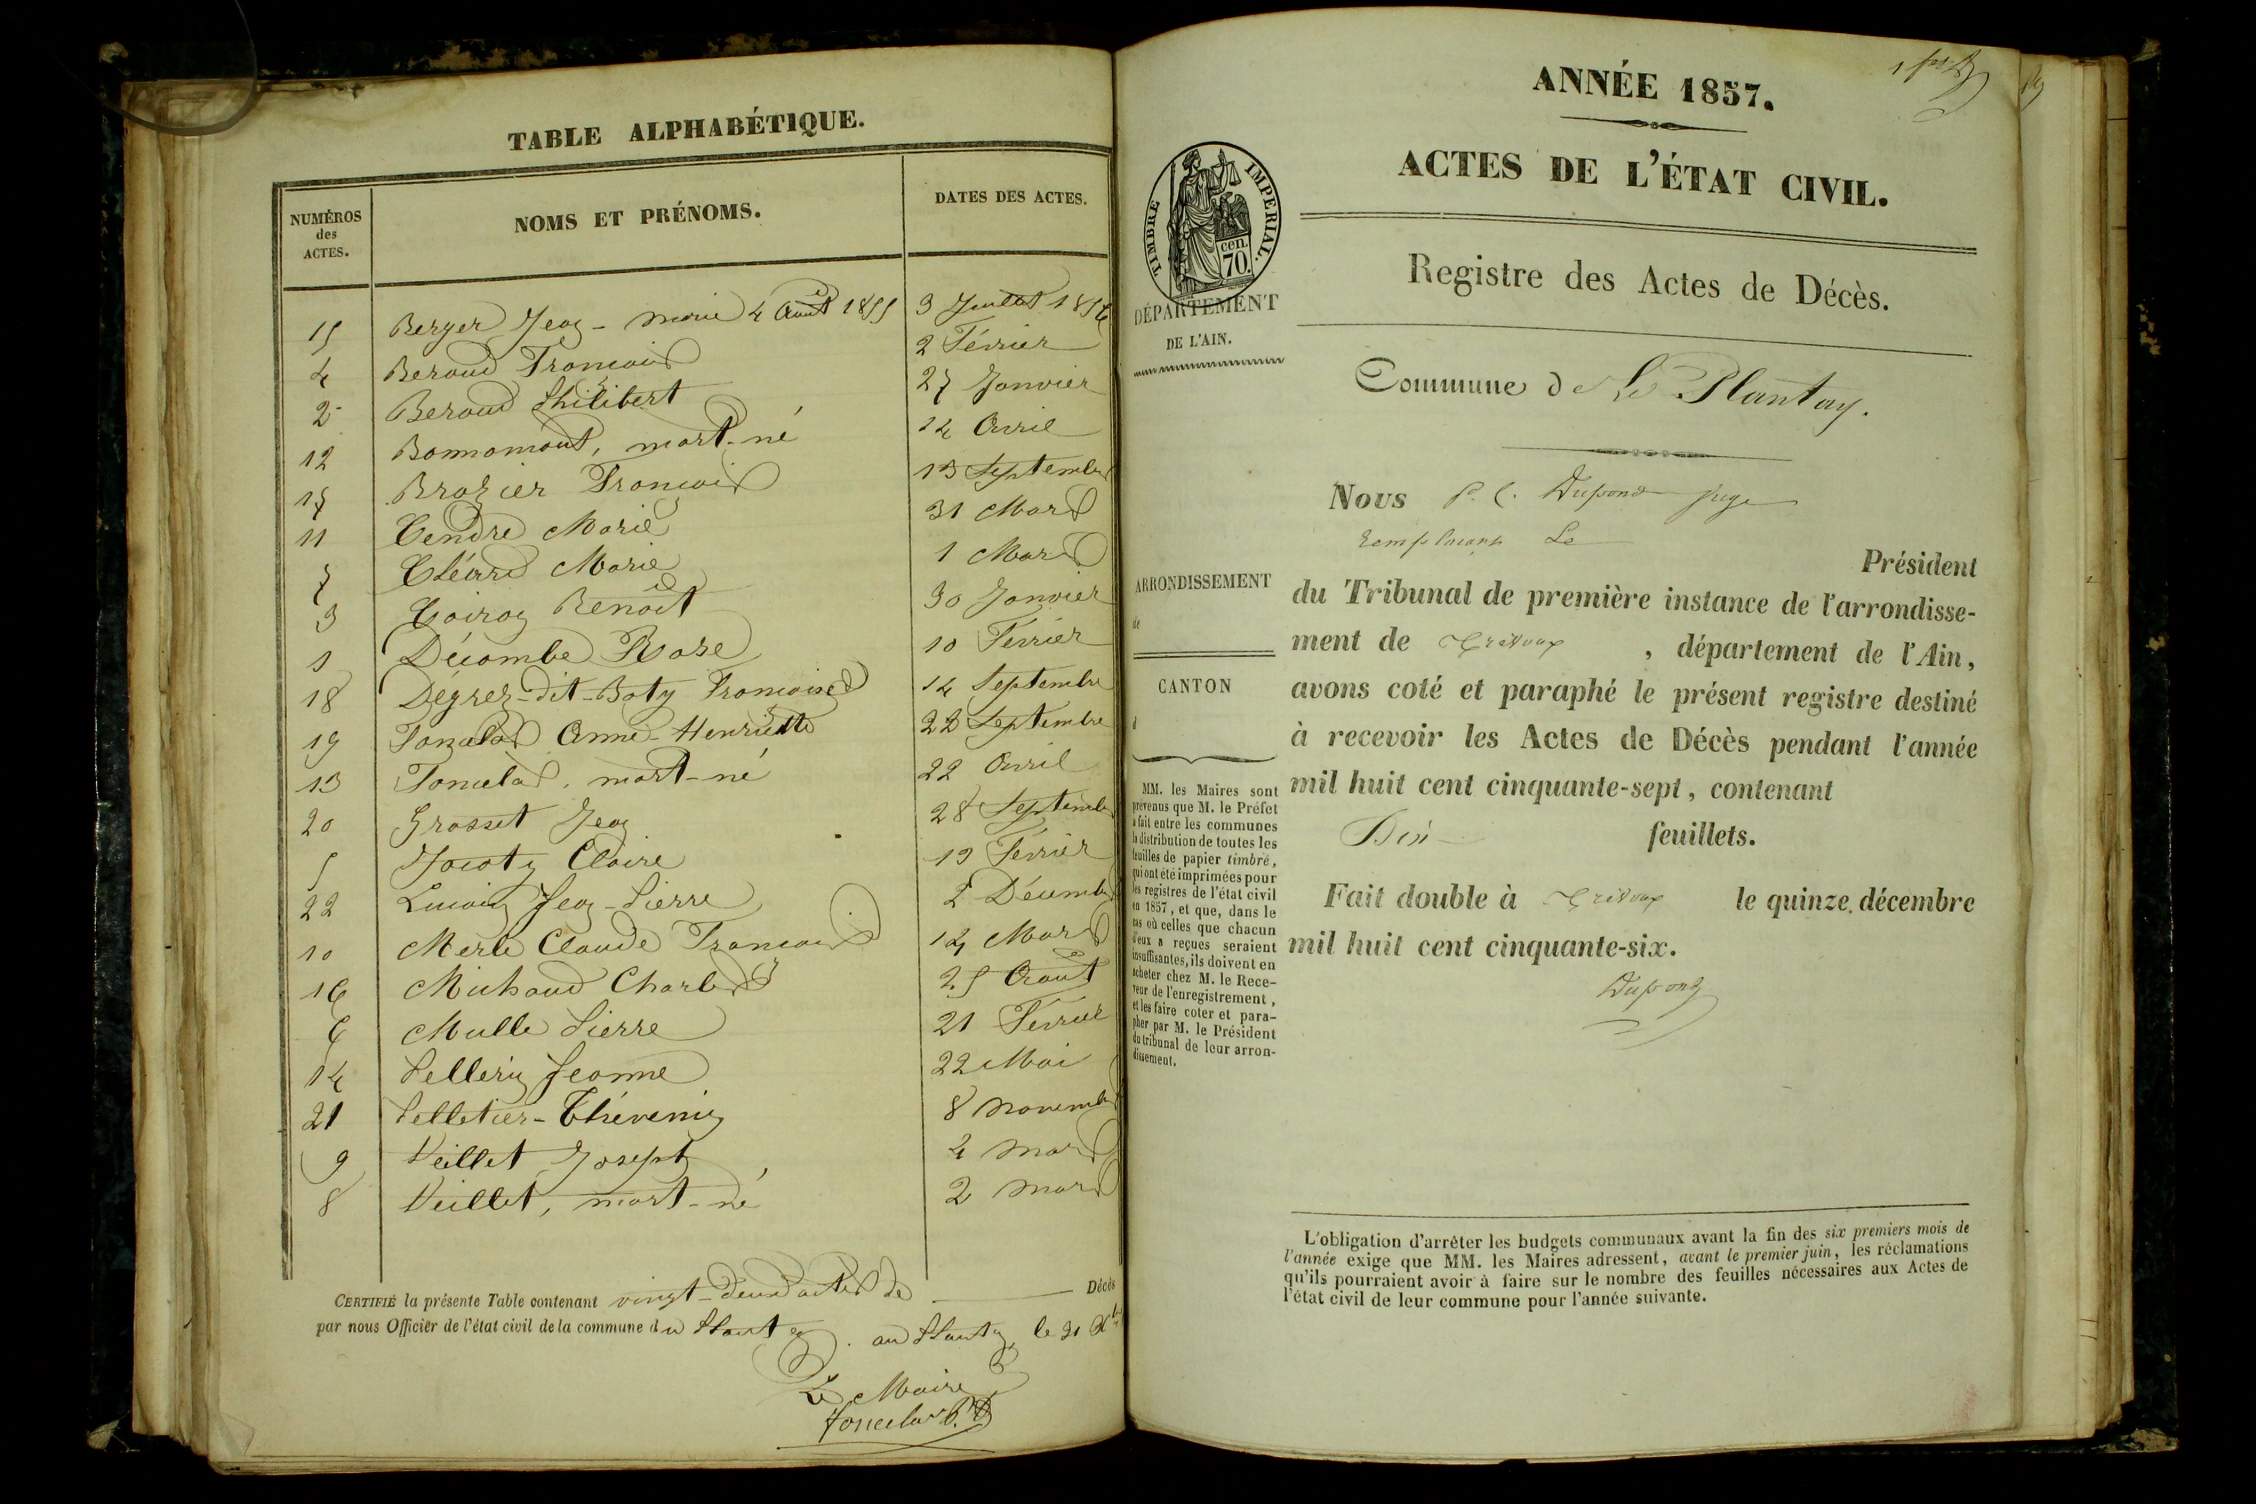 TABLE ALPHABÉTIQUE.
NUMÉROS des ACTES. NOMS ET PRÉNOMS. DATES DES ACTES.
15 Berger Jean-marie 4 Août 1855 3 Juillet 1856
4 Beroud François 2 Février
2 Beroud Philibert 27 Janvier
12 Bonnamout, mort-né 14 Avril
17 Brazier François 13 Septembre
11 Cendre Marie 31 Mars
7 Cléard Marie 1 Mars
3 Coiron Benoit 30 Janvier
1 Décombe Rose 10 Février
18 Dégrez-dit-Baty Françoise 14 Septembre
19 Foncelas Anne Henriette 22 Septembre
13 Foncelas, mort-né 22 Avril
20 Grosset Jean 28 Septembre
5 Jacoty Claire 19 Février
22 Jean-Pierre 2 Décembre
10 Merle Claude François 14 Mars
16 Michaud Charles 25 Août
6 Mulle Pierre 21 Février
14 Pellerin Jeanne 22 Mai
21 Pelletier-Thévenin 8 novembre
9 Veillet Joseph 4 mars
8 Veillet, mort-né 2 mars
CERTIFIÉ la présente Table contenant vingt-deux actes de Décès
par nous Officier de l'état civil de la commune du Plantay. au Plantay le 31 Xbre
Le Maire
Foncelas
ANNÉE 1857.
ACTES DE L'ÉTAT CIVIL.
TIMBRE IMPERIAL.
cen.
70.
DÉPARTEMENT
DE L'AIN.
Registre des Actes de Décès.
Commune de Le Plantay.
Nous P. C. Dupond juge
remplaçant Le
Président
du Tribunal de première instance de l'arrondisse-
ment de Trévoux, département de l'Ain,
avons coté et paraphé le présent registre destiné
à recevoir les Actes de Décès pendant l'année
mil huit cent cinquante-sept, contenant
Dix feuillets.
Fait double à Trévoux le quinze décembre
mil huit cent cinquante-six.
Dupond
ARRONDISSEMENT
de
CANTON
d
MM. les Maires sont
prévenus que M. le Préfet
a fait entre les communes
la distribution de toutes les
feuilles de papier timbré,
qui ont été imprimées pour
les registres de l'état civil
en 1857, et que, dans le
cas où celles que chacun
d'eux a reçues seraient
insuffisantes, ils doivent en
acheter chez M. le Rece-
veur de l'enregistrement,
et les faire coter et para-
pher par M. le Président
du tribunal de leur arron-
dissement.
L'obligation d'arrêter les budgets communaux avant la fin des six premiers mois de
l'année exige que MM. les Maires adressent, avant le premier juin, les réclamations
qu'ils pourraient avoir à faire sur le nombre des feuilles nécessaires aux Actes de
l'état civil de leur commune pour l'année suivante.